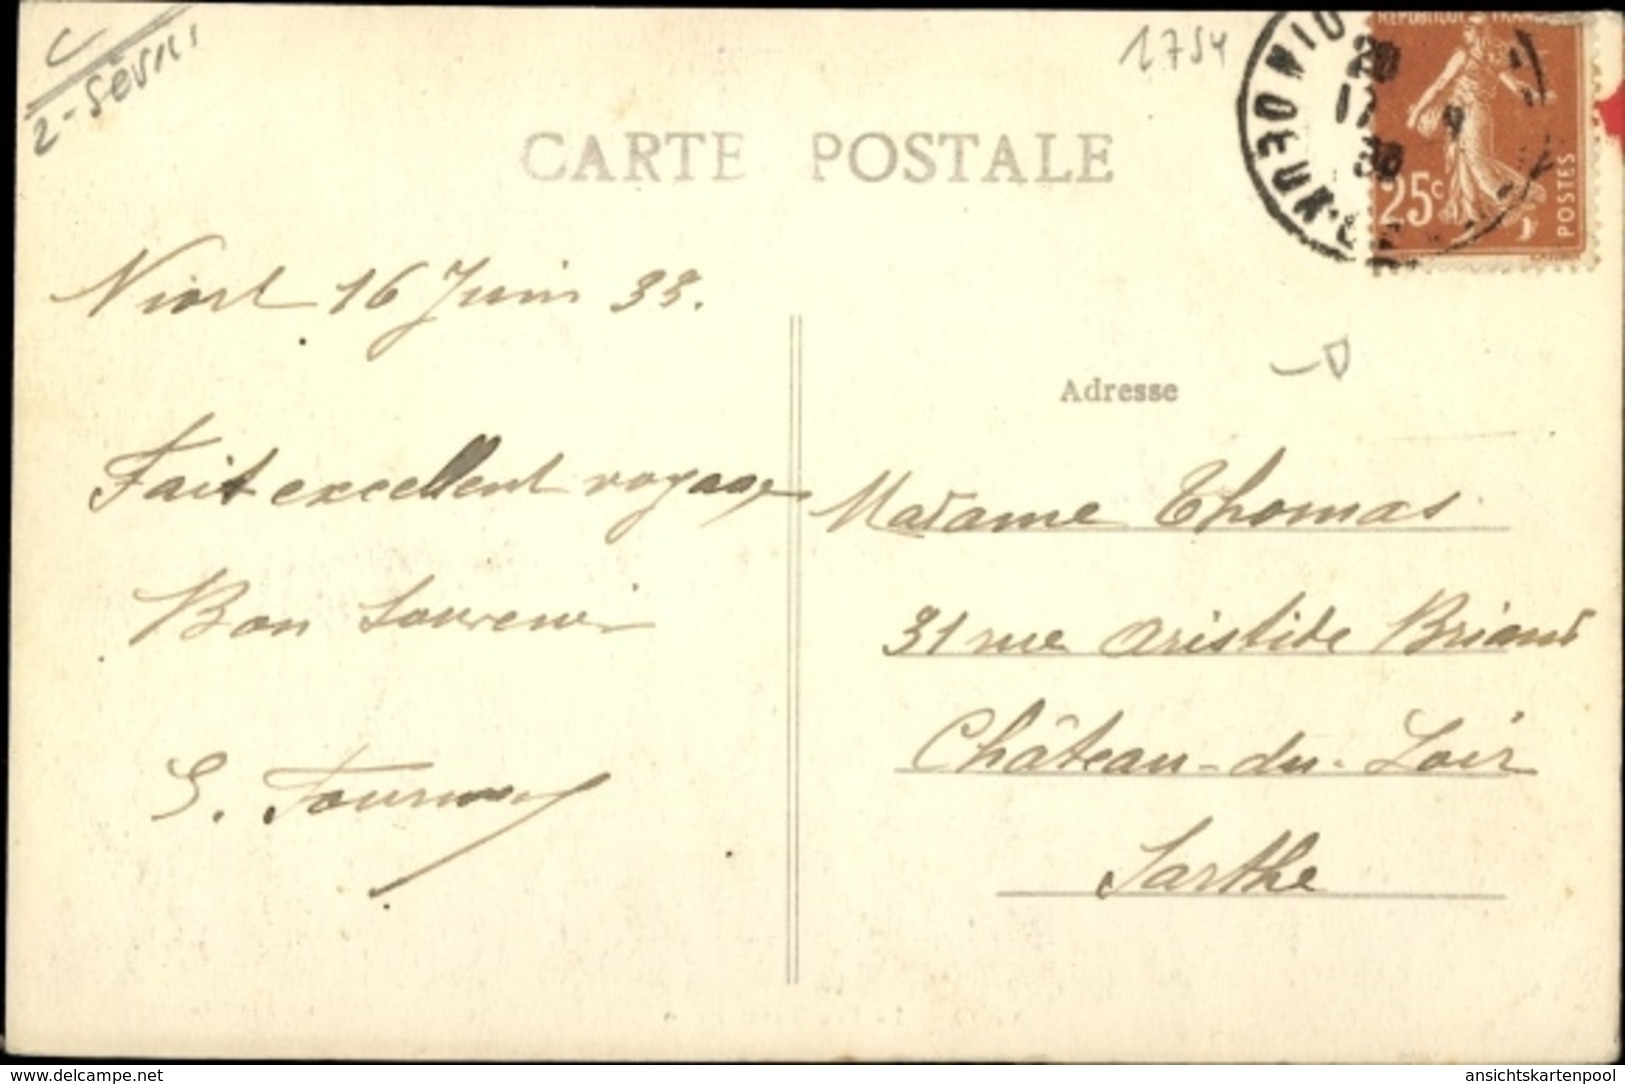 C
2-Sèvres
1754
CARTE POSTALE
REPUBLIQUE FRANC
20
17
25c
POSTES
Niort 16 Juin 38.
Adresse
Fait excellent voyage
Madame Thomas
Bon souvenir
31 rue Aristide Briand
Château-du-Loir
Sarthe
delcampe.net
ansichtskartenpool